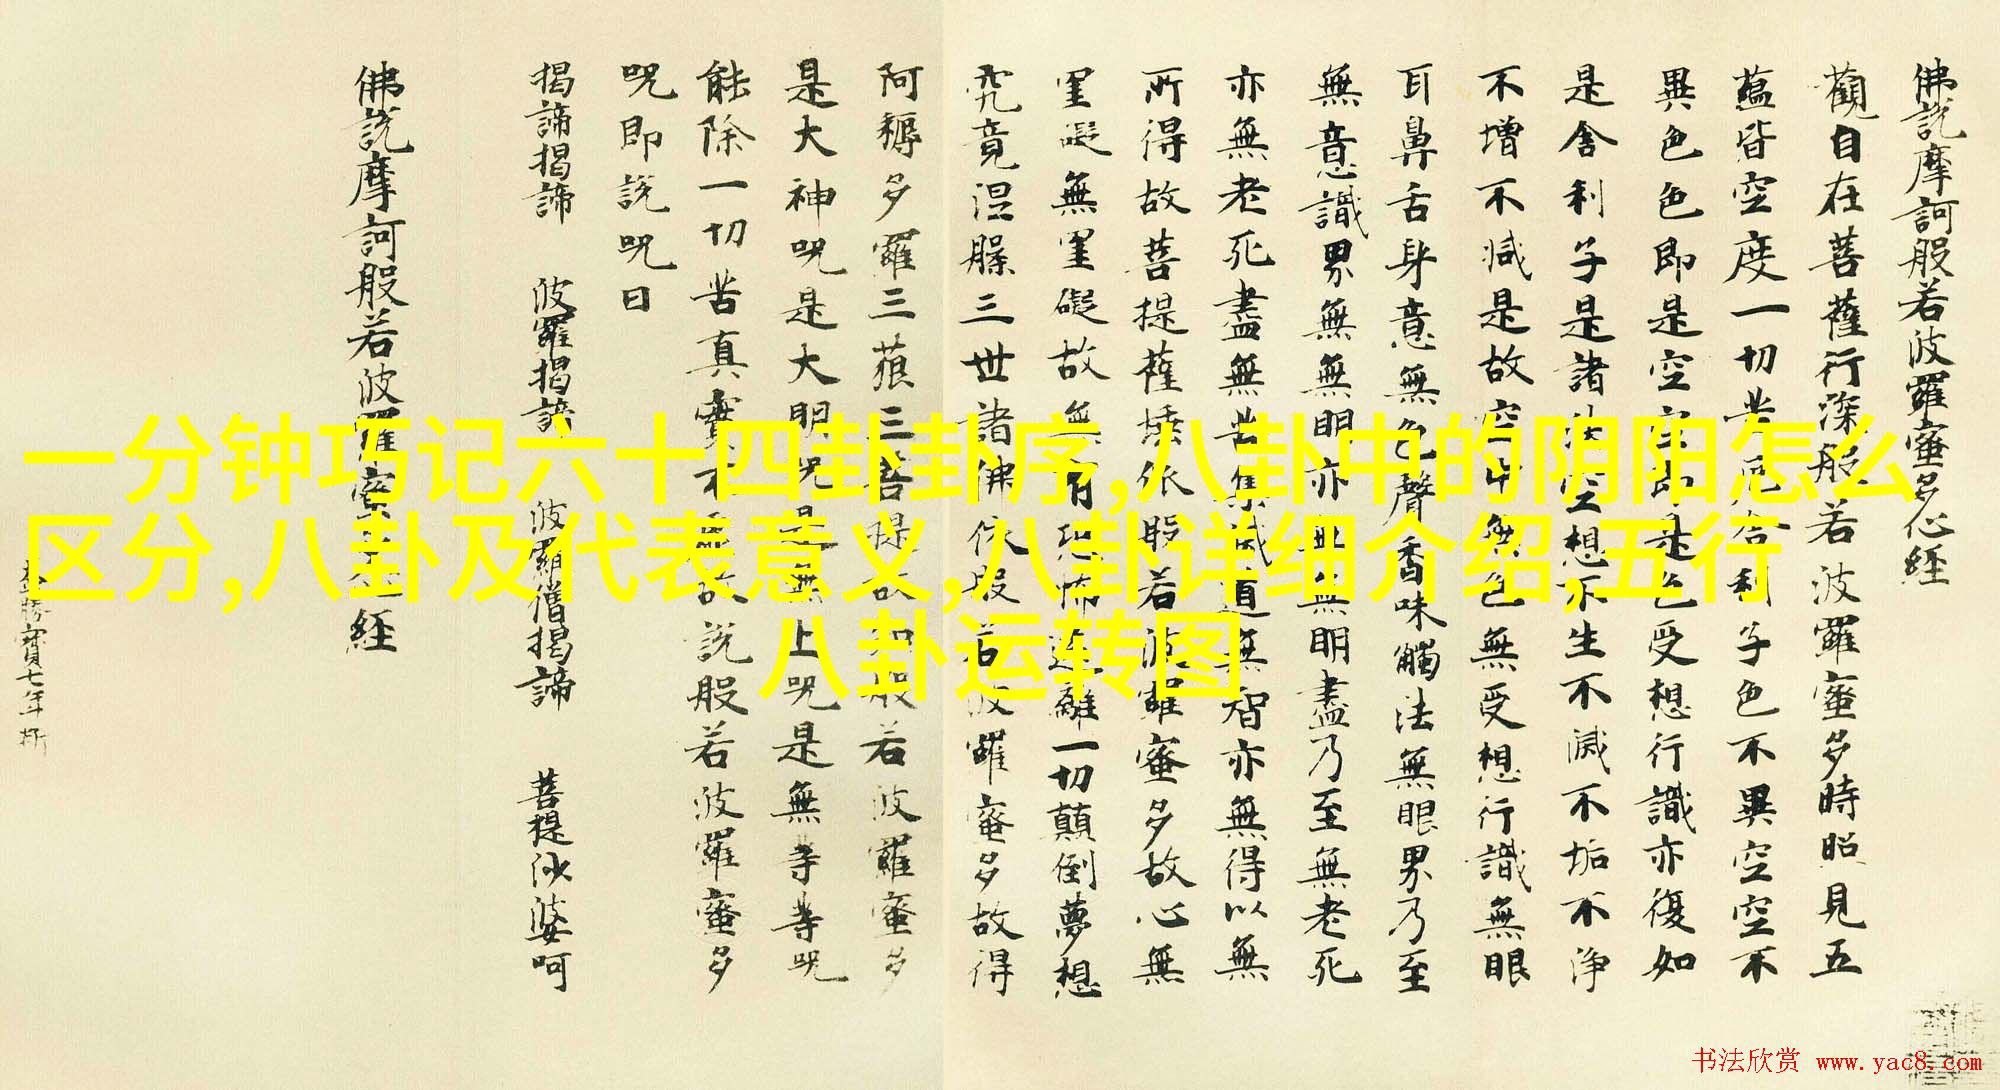 佛説摩訶般若波羅蜜多心經
觀自在菩薩行深般若波羅蜜多時照見五
蘊皆空度一切苦厄舍利子色不異空空不
異色色即是空空即是色受想行識亦復如
是舍利子是諸法空想不生不滅不垢不淨
不增不減是故空中無色無受想行識無眼
耳鼻舌身意無色聲香味觸法無眼界乃至
無意識界無無明亦無無明盡乃至無老死
亦無老死盡無苦集滅道無智亦無得以無
所得故菩提薩埵依般若波羅蜜多故心無
罣礙無罣礙故無有恐怖遠離一切顛倒夢想
究竟涅槃三世諸佛依般若波羅蜜多故得
阿耨多羅三藐三菩提故知般若波羅蜜多
是大神咒是大明咒是無上咒是無等等咒
能除一切苦真實不虛故說般若波羅蜜多
咒即説咒曰
揭諦揭諦 波羅揭諦 波羅僧揭諦 菩提沙婆呵
佛説摩訶般若波羅蜜多心經
一分钟巧记六十四卦卦序,八卦中的阴阳怎么
区分,八卦及代表意义,八卦详细介绍,五行
八卦运转图
书法欣赏 www.yac8.com